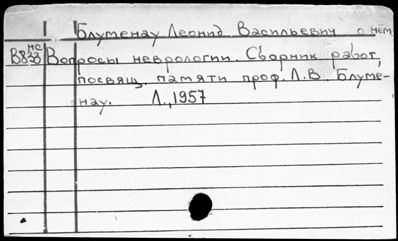 Блуменау Леонид Васильевич о нем
нс
В833 Вопросы неврологии. Сборник работ,
посвящ. памяти проф. Л.В. Блуме-
нау. Л., 1957